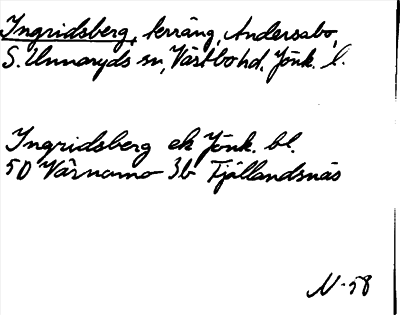 Ingridsberg, terräng, Andersabo,
S. Unnaryds sn, Västbo hd, Jönk. l.
Ingridsberg ek Jönk. bl.
5D Värnamo 3b Tjällandsnäs
N-58